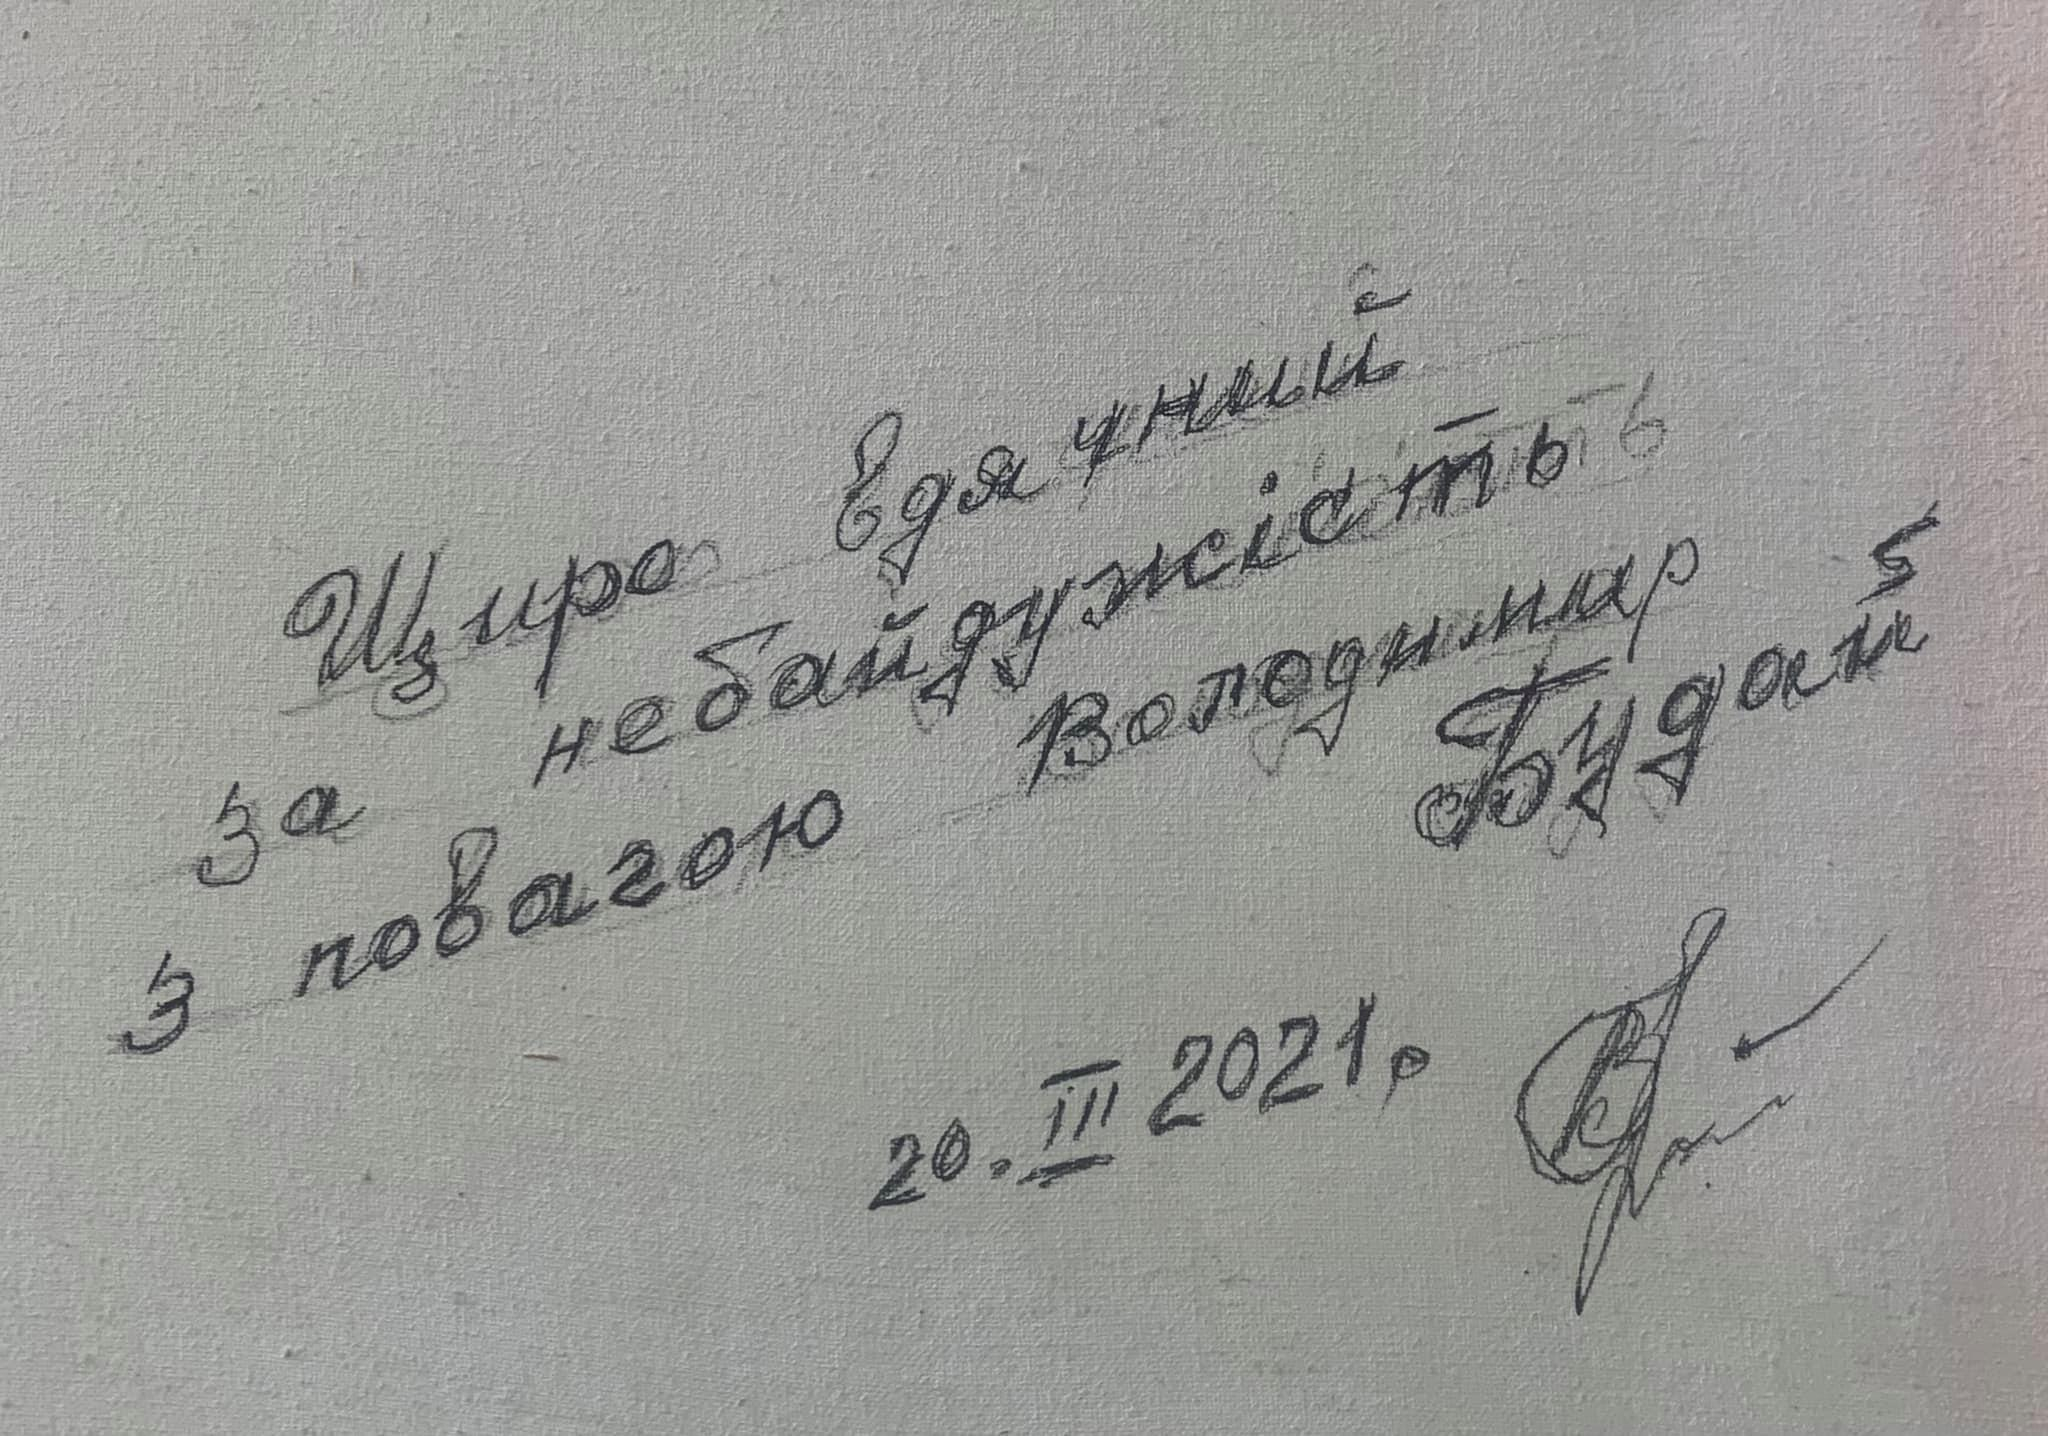 Щиро вдячний
за небайдужість
з повагою Володимир
Будан
20.III 2021р